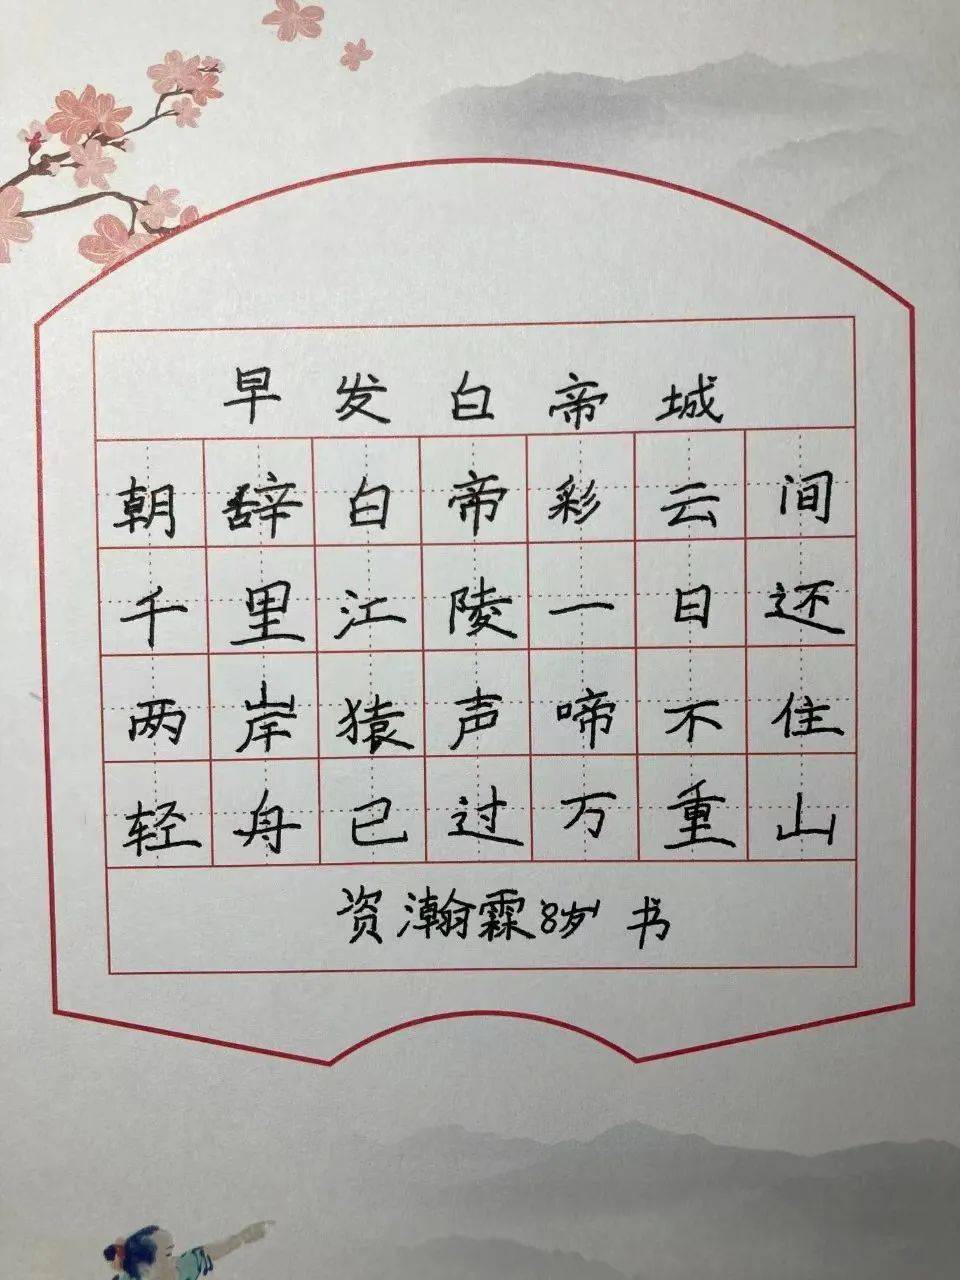 早发白帝城
朝辞白帝彩云间
千里江陵一日还
两岸猿声啼不住
轻舟已过万重山
资瀚霖8岁书